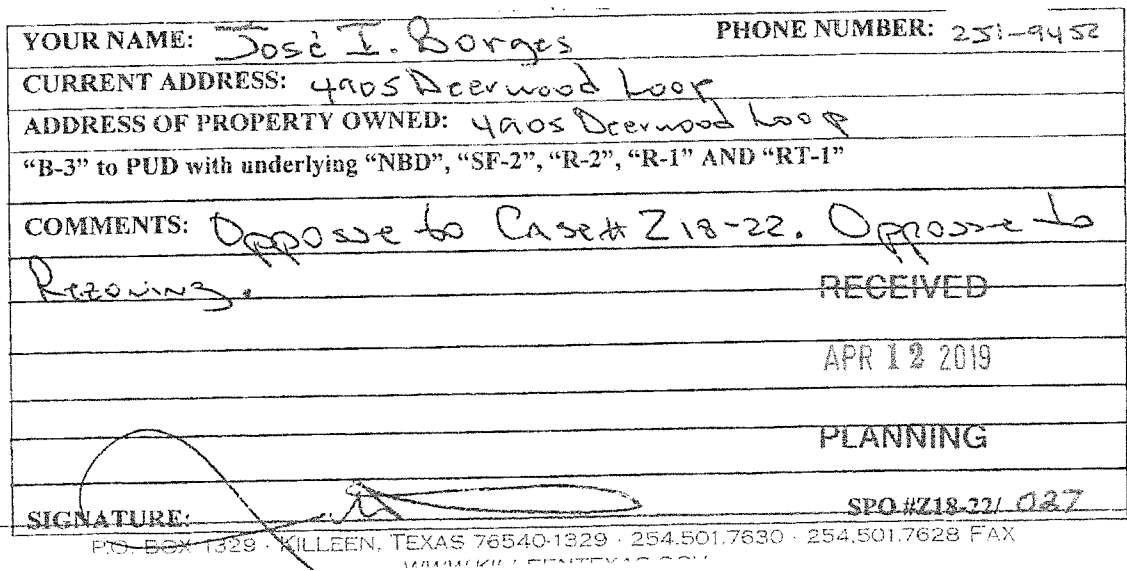 YOUR NAME: José I. Borges PHONE NUMBER: 251-9452
CURRENT ADDRESS: 4905 Deerwood Loop
ADDRESS OF PROPERTY OWNED: 4905 Deerwood Loop
"B-3" to PUD with underlying "NBD", "SF-2", "R-2", "R-1" AND "RT-1"
COMMENTS: Oppose to Case# Z18-22. Opposse to
Rezoning.
RECEIVED
APR 12 2019
PLANNING
SIGNATURE: SPO #Z18-22/ 027
P.O. BOX 1329 · KILLEEN, TEXAS 76540-1329 · 254.501.7630 · 254.501.7628 FAX